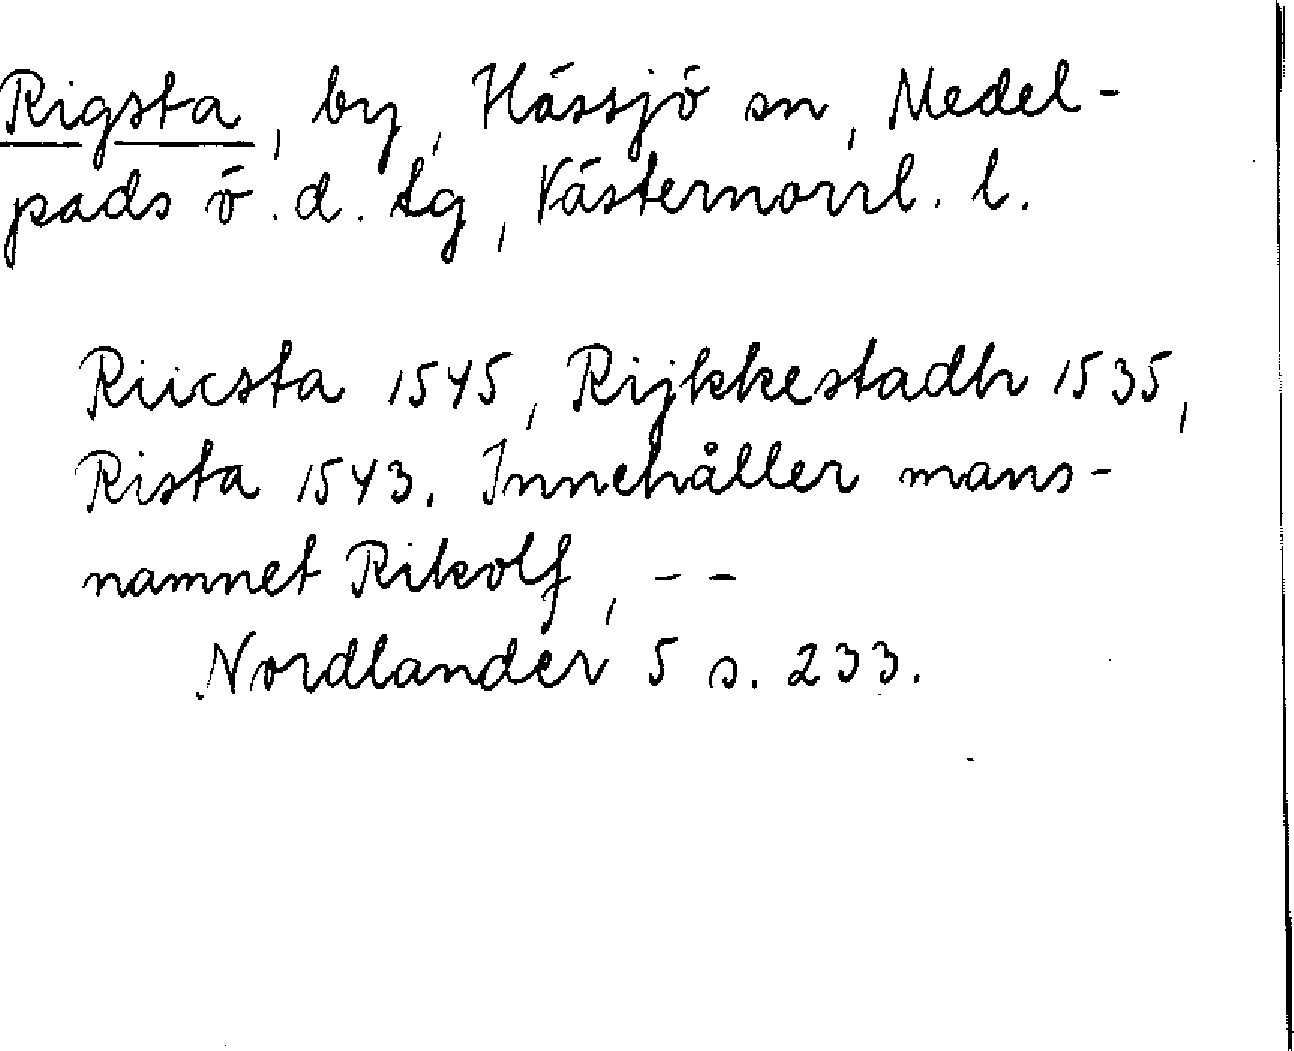 Rigsta, by, Hässjö sn, Medel-
pads ö. d. tg, Västernorrl. l.
Riicsta 1545, Rijkkestadh 1535,
Rista 1543. Innehåller mans-
namnet Rikolf, - -
Nordlander 5 s. 233.